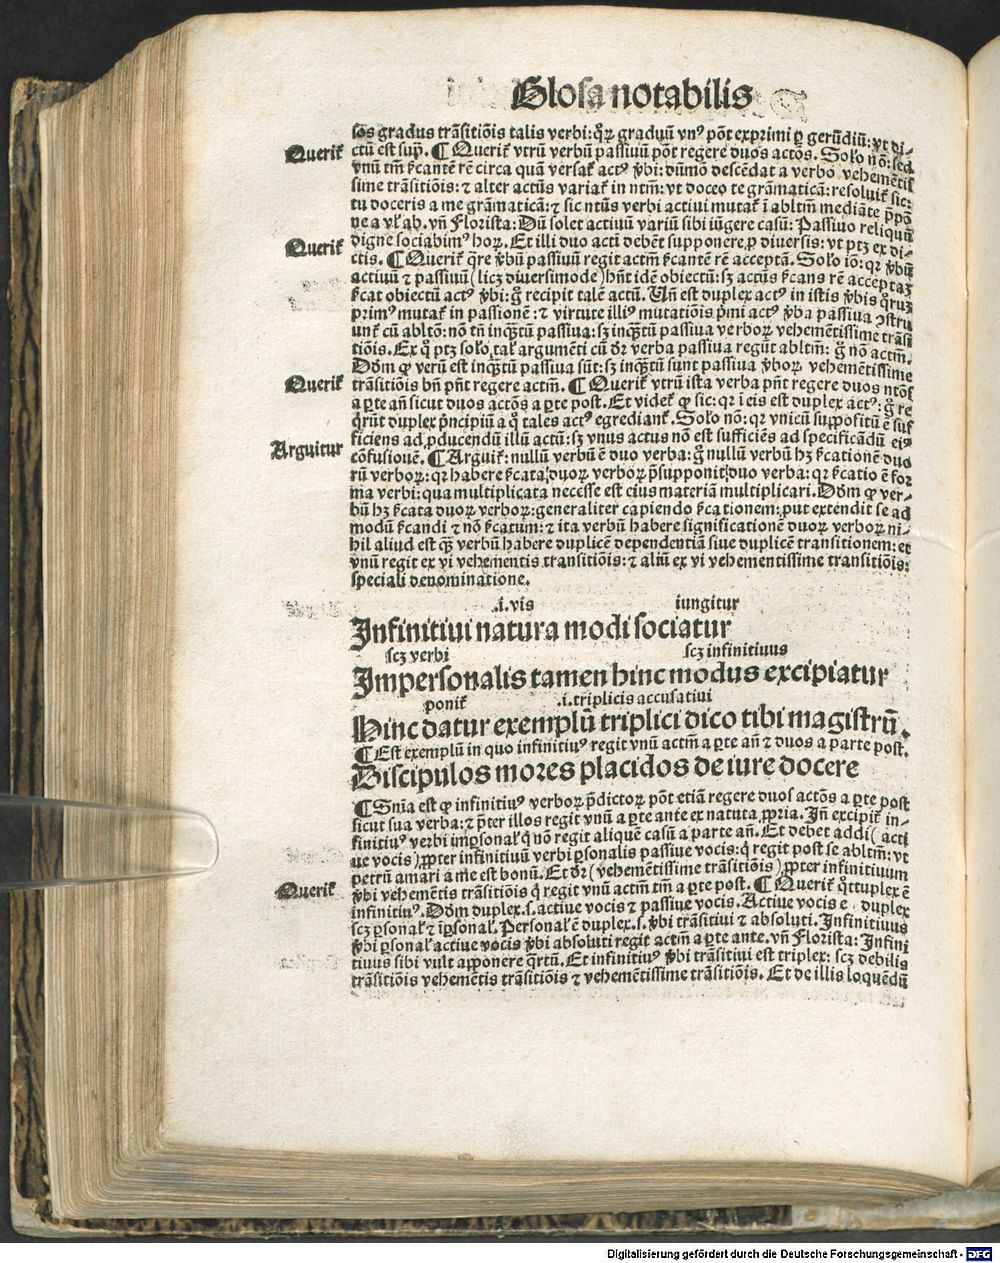 Glosa notabilis
sōs gradus trāsitiōis talis verbi: qꝝ graduū vnꝰ pōt exprimi ꝑ gerūdiū: vt di-
Querit᷑ ctū est supͣ. ¶ Querit᷑ vtrū verbū passiuū pōt regere duos actōs. Soło nō: sed
vnū tm̄ ſcantē rē circa quā versat᷑ actꝰ v̄bi: dūmō descēdat a verbo vehemētis
sime trāsitiōis: ⁊ alter actūs variat᷑ in ntm̄: vt doceo te grāmaticā: resoluit᷑ sic:
tu doceris a me grāmaticā: ⁊ sic ntūs verbi actiui mutat᷑ ī abltm̄ mediāte p̄pō
ne a vł ab. vn̄ Florista: Dū solet actiuū variū sibi iūgere casū: Passiuo reliquū
Querit᷑ digne sociabimꝰ hoꝝ. Et illi duo acti debēt supponere ꝓ diuersis: vt ptꝫ ex di-
ctis. ¶ Querit᷑ q̄re v̄bū passiuū regit actm̄ ſcantē rē acceptā. Soło iō: qꝛ v̄bū
actiuū ⁊ passiuū (licꝫ diuersimode) hn̄t idē obiectū: sꝫ actūs ſcans rē acceptaꝫ
ſcat obiectū actꝰ v̄bi: g̊ recipit talē actū. Un̄ est duplex actꝰ in istis v̄bis q̊ruꝫ
primꝰ mutat᷑ in passionē: ⁊ virtute illiꝰ mutatiōis p̄mi actꝰ v̄ba passiua ↄstru
unt᷑ cū abltō: nō tn̄ inqͣꝫtū passiua: sꝫ inqͣꝫtū passiua verboꝝ vehemētissime trāsi
tiōis. Ex q̊ ptꝫ soło tał argumēti cū dr̄ verba passiua regūt abltm̄: g̊ nō actm̄.
Dōm ꝙ verū est inqͣꝫtū passiua sūt: sꝫ inqͣꝫtū sunt passiua v̄boꝝ vehemētissime
Querit᷑ trāsitiōis bn̄ pn̄t regere actm̄. ¶ Querit᷑ vtrū ista verba pn̄t regere duos ntōs
a ꝑte an̄ sicut duos actōs a ꝑte post. Et videt᷑ ꝙ sic: qꝛ ī eis est duplex actꝰ: g̊ re
q̄rūt duplex p̄ncipiū a q̊ tales actꝰ egrediant᷑. Soło nō: qꝛ vnicū suppositū ē suf
ficiens ad ꝓducendū illū actū: sꝫ vnus actus nō est sufficiēs ad specificādū eiꝰ
Arguitur cōfusionē. ¶ Arguit᷑: nullū verbū ē duo verba: g̊ nullū verbū hꝫ ſcationē duo
rū verboꝝ: qꝛ habere ſcata duoꝝ verboꝝ p̄supponit duo verba: qꝛ ſcatio ē for
ma verbi: qua multiplicata necesse est eius materiā multiplicari. Dōm ꝙ ver-
bū hꝫ ſcata duoꝝ verboꝝ: generaliter capiendo ſcationem: ꝓut extendit se ad
modū ſcandi ⁊ nō ſcatum: ⁊ ita verbū habere significationē duoꝝ verboꝝ ni-
hil aliud est qͣꝫ verbū habere duplicē dependentiā siue duplicē transitionem: et
vnū regit ex vi vehementis transitiōis: ⁊ aliū ex vi vehementissime transitiōis:
speciali denominatione.
.i. vis iungitur
Infinitiui natura modi sociatur
scꝫ verbi scꝫ infinitiuus
Impersonalis tamen hinc modus excipiatur
ponit᷑ .i. triplicis accusatiui
Hinc datur exemplū triplici dico tibi magistrū.
¶ Est exemplū in quo infinitiuꝰ regit vnū actm̄ a ꝑte an̄ ⁊ duos a parte post.
Discipulos mores placidos de iure docere
¶ Snīa est ꝙ infinitiuꝰ verboꝝ p̄dictoꝝ pōt etiā regere duos actōs a ꝑte post
sicut sua verba: ⁊ p̄ter illos regit vnū a ꝑte ante ex natuta ꝓpria. In̄ excipit᷑ in-
finitiuꝰ verbi imꝑsonał q̇ nō regit aliquē casū a parte an̄. Et debet addi (acti
ue vocis) ꝓpter infinitiuū verbi ꝑsonalis passiue vocis: q̇ regit post se abltm̄: vt
petrū amari a me est bonū. Et dr̄ (vehemētissime trāsitiōis) ꝓpter infinitiuum
Querit᷑ v̄bi vehemētis trāsitiōis q̇ regit vnū actm̄ tm̄ a ꝑte post. ¶ Querit᷑ q̊ttuplex ē
infinitiuꝰ. Dōm duplex .s. actiue vocis ⁊ passiue vocis. Actiue vocis e duplex
scꝫ ꝑsonał ⁊ īꝑsonał. Personał ē duplex .s. v̄bi trāsitiui ⁊ absoluti. Infinitiuus
v̄bi ꝑsonał actiue vocis v̄bi absoluti regit actm̄ a ꝑte ante. vn̄ Florista: Infini
tiuus sibi vult apponere q̄rtū. Et infinitiuꝰ v̄bi trāsitiui est triplex: scꝫ debilis
trāsitiōis vehemētis trāsitiōis ⁊ vehemētissime trāsitiōis. Et de illis loquēdū
Digitalisierung gefördert durch die Deutsche Forschungsgemeinschaft - DFG